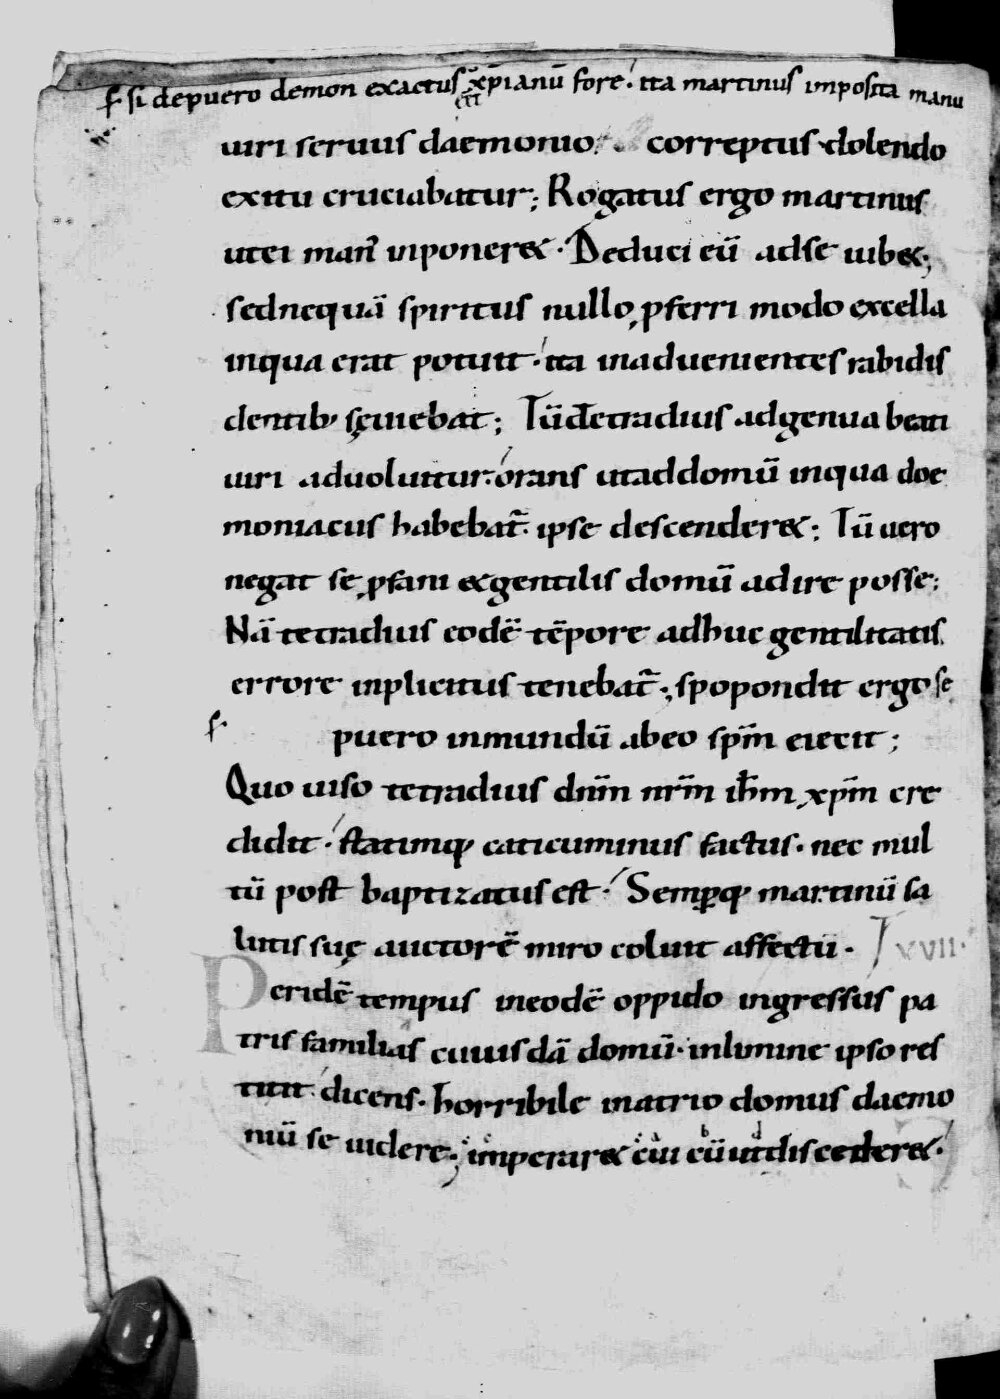 ſ. si depuero demon exactus ẽẽt xp̄ianū fore · ita martinus imposita manu
uiri seruus daemonio correptus dolendo
exitu cruciabatur; Rogatus ergo martinus
utei man̄ inponeret · Deduci eū adse iubet;
sednequā spiritus nullo ꝓferri modo excella
inqua erat potuit · ita inaduenientes rabidis
dentib; sęuiebat; Tūc tetradius adgenua beati
uiri aduoluitur · orans utaddomū inqua doe
moniacus habebat̄ · ipse descenderet; Tū uero
negat se ꝓfani & gentilis domū adire posse;
Nā tetradius eodē tēpore adhuc gentilitatis
errore inplicitus tenebat̄; spopondit ergo se
ſ. puero inmundū abeo sp̄m eiecit;
Quo uiso tetradius dn̄m nr̄m ih̄m xp̄m cre
didit · statimq; caticuminus factus · nec mul
tū post baptizatus est · Semꝑq; martinū sa
lutis suę auctorē miro coluit affectu · XVII ·
Peridē tempus ineodē oppido ingressus pa
tris familias cuiusdā domū · inlimine ipso res
titit · dicens · horribile inatrio domus daemo
niū se uidere; imperaret cui cū utdiscederet ·